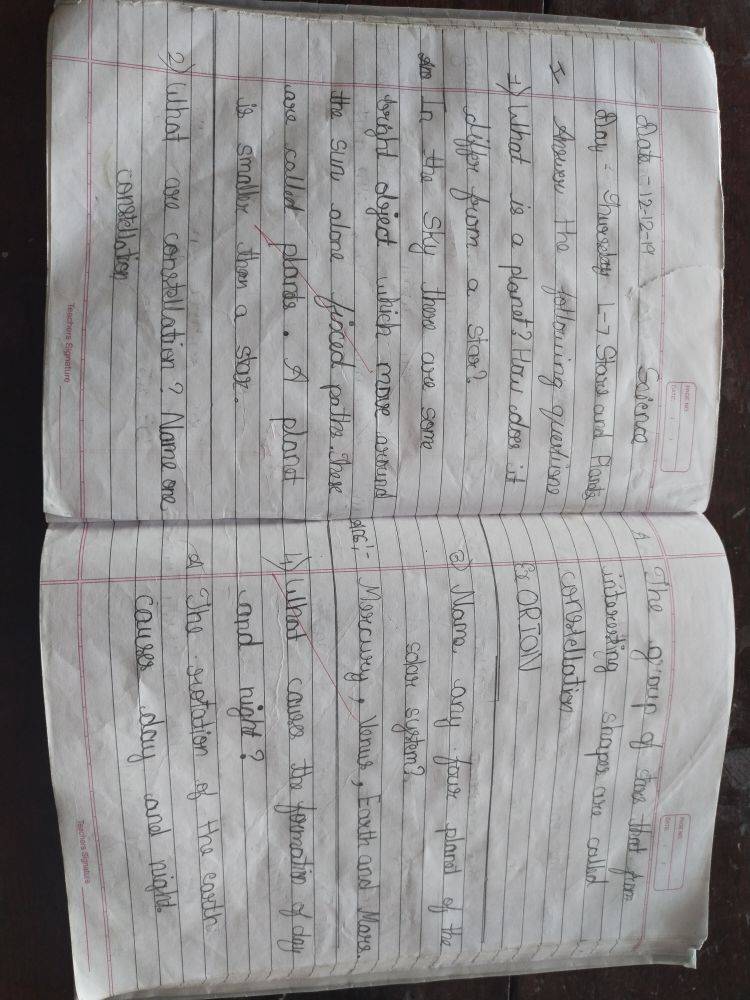 PAGE NO.
DATE: / /
Date = 12-12-19 Science
Day = Thursday L-7 Stars and Plants
I Answer the following questions
1) What is a planet? How does it
differ from a star?
Ans In the sky there are some
bright object which move around
the sun alone fixed paths. These
are called plants. A planet
is smaller than a star.
2) What are constellation? Name one
constellation
Teachers Signature
PAGE NO.
DATE: / /
A The group of stars that form
interesting shapes are called
constellation
Ex ORION
3) Name any four planet of the
solar system?
Ans:- Mercury, Venus, Earth and Mars.
4) What causes the formation of day
and night?
A) The rotation of the earth
causes day and night.
Teachers Signature